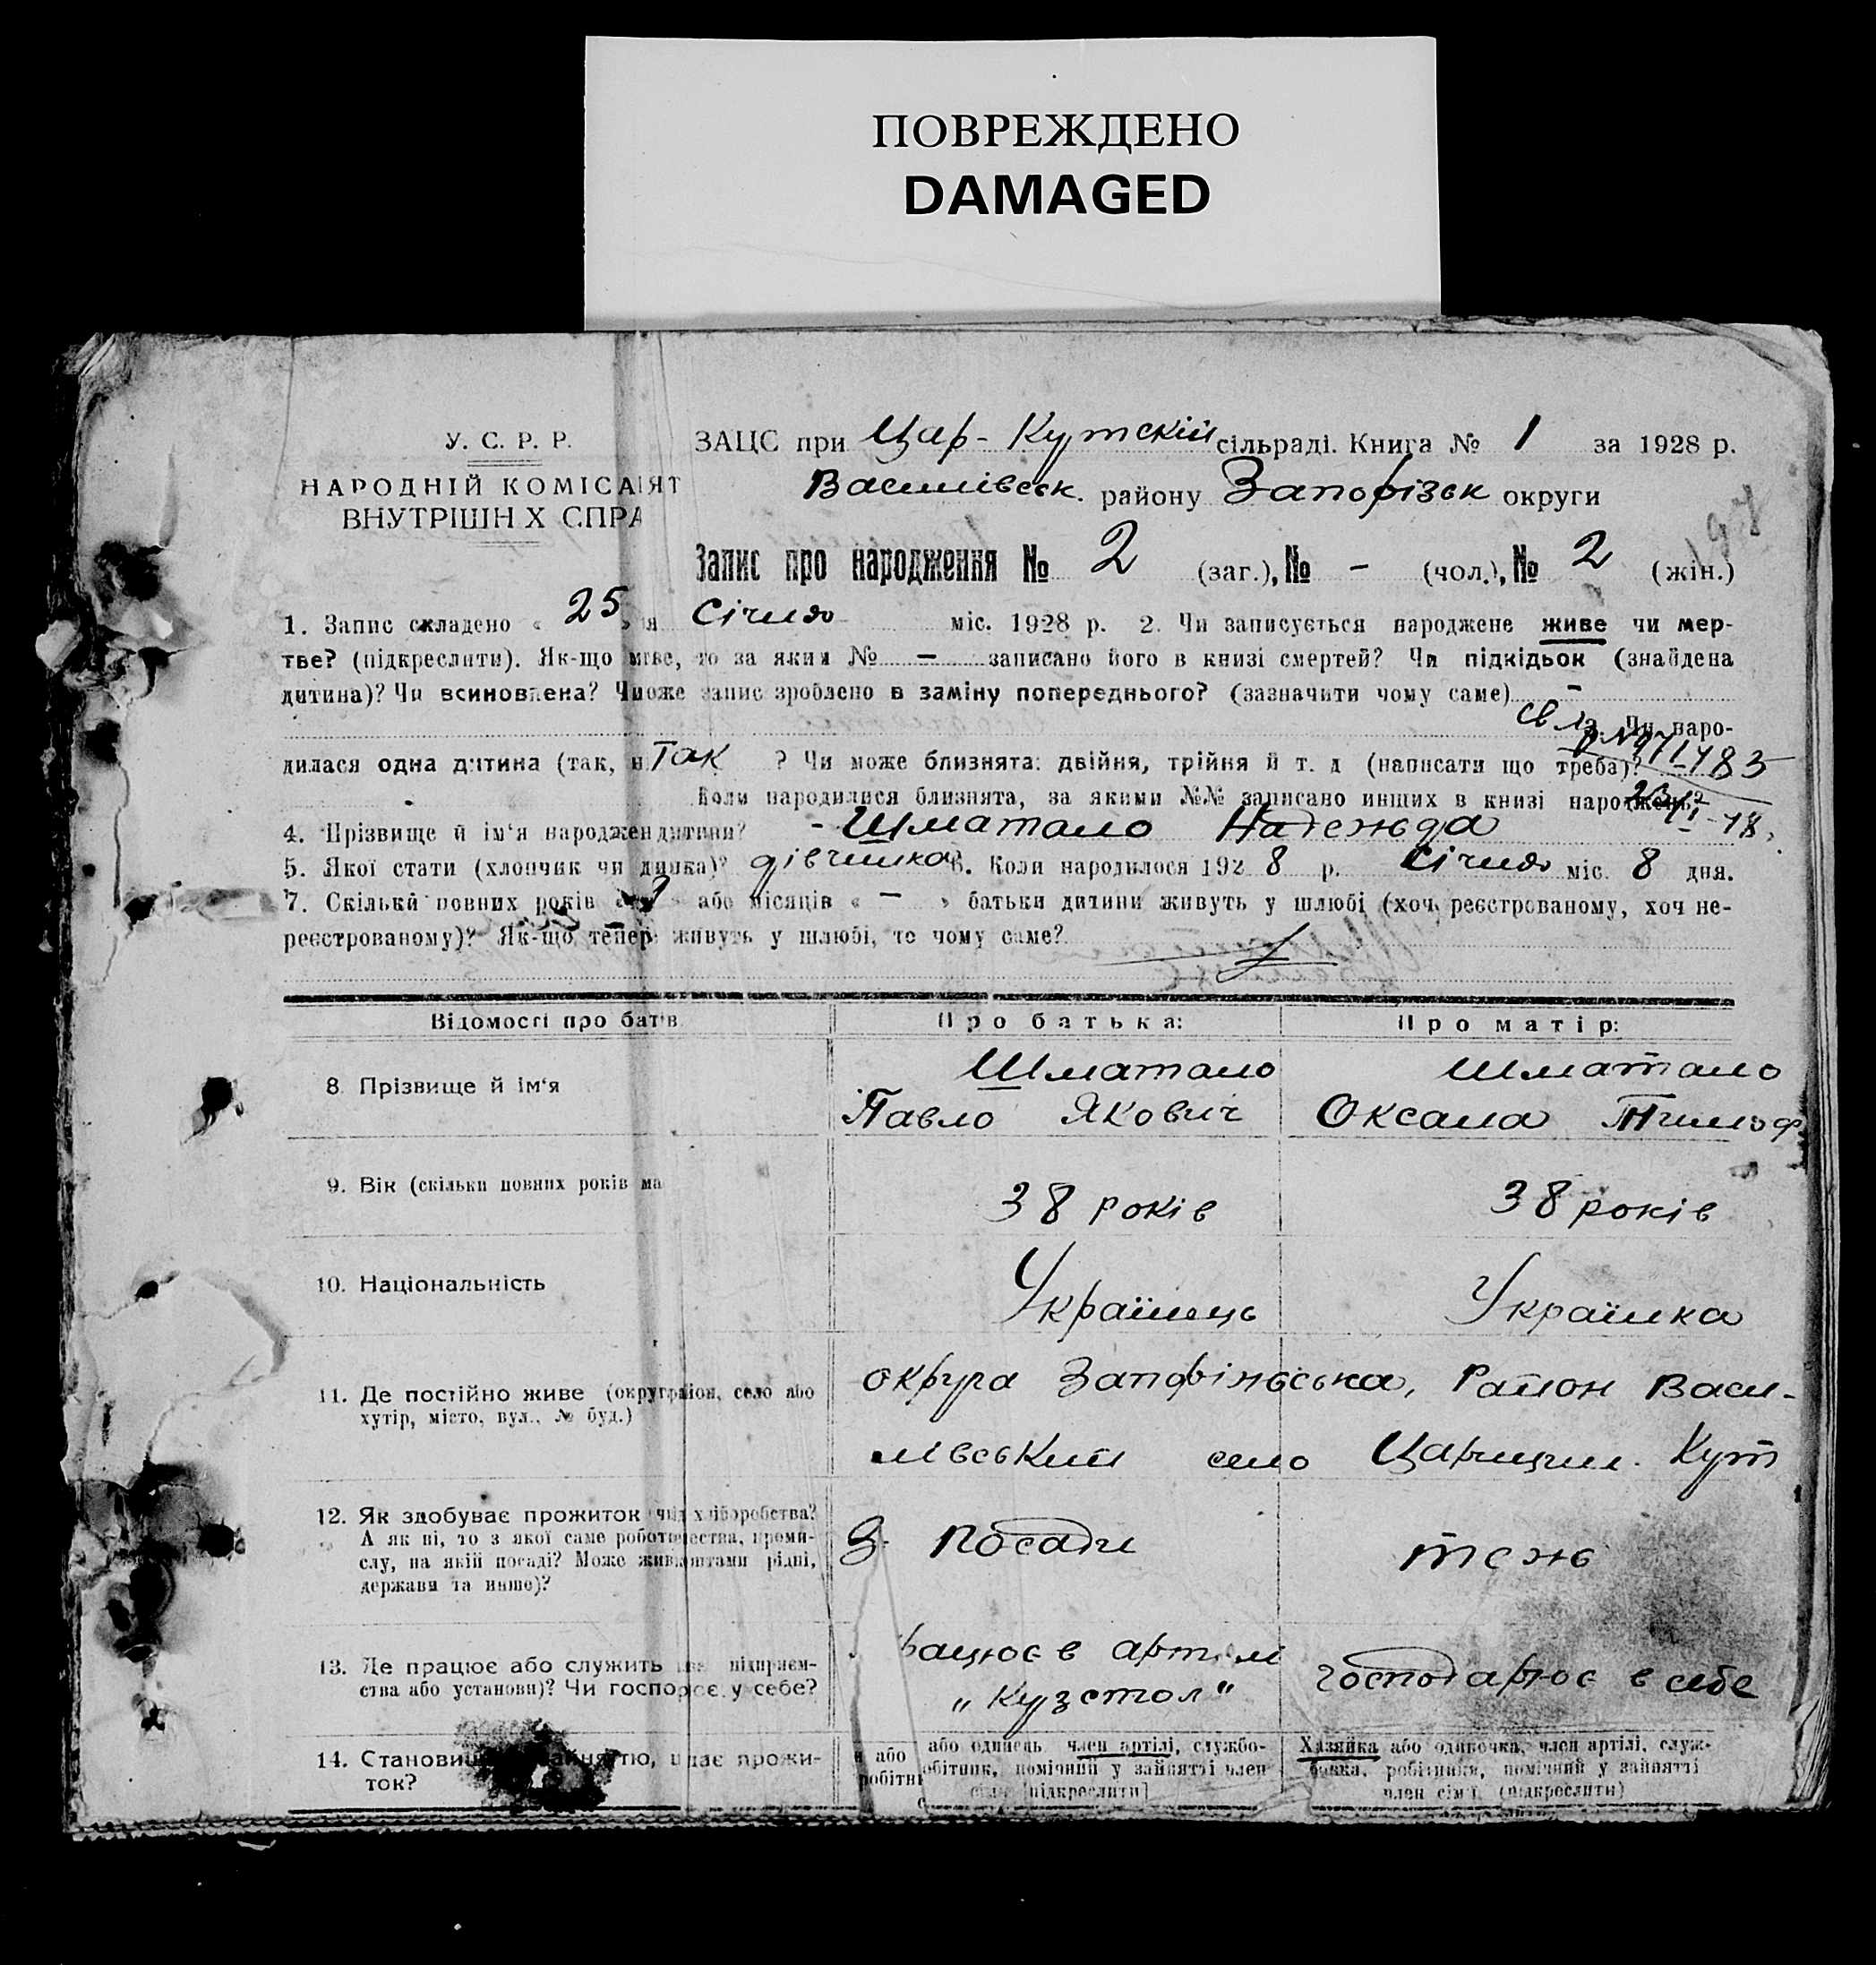 ПОВРЕЖДЕНО
DAMAGED
У. С. Р. Р.
НАРОДНІЙ КОМІСАРІЯТ
ВНУТРІШН Х СПРА
ЗАЦС при Цар-Кутскій сільраді. Книга № 1 за 1928 р.
Василівськ. району Запоріз округи
Запис про народження № 2 (заг.), № - (чол.), № 2 (жін.)
1. Запис складено « 25 » я Січня міс. 1928 р. 2. Чи записується народжене живе чи мер-
тве? (підкреслити). Як-що то за яким № - записано його в книзі смертей? Чи підкідьок (знайдена
дитина)? Чи всиновлена? може запис зроблено в заміну попереднього? (зазначити чому саме) -
3. Чи наро-
дилася одна дитина (так, н Так ? Чи може близнята: двійня, трійня й т. д (написати що треба)?
Коли народилися близнята, за якими №№ записано инших в книзі народжень?
4. Прізвище й ім'я народжен дитини? - Шматало Надежда
5. Якої статі (хлопчик чи дівчинка 6. Коли народилося 192 8 р. Січня міс. 8 дня.
7. Скільки повних років або місяців « - » батьки дитини живуть у шлюбі (хоч реєстрованому, хоч не-
реєстрованому)? Як-що тепер живуть у шлюбі, то чому саме?
Відомості про бат в
Про батька:
Про матір:
8 Прізвище й ім'я
Шматало
Павло Якович
Шматало
Оксана
9. Вік (скільки повних років ма
38 років
38 років
10. Національність
Українець
Українка
11. Де постійно живе (округ район, село або
хутір, місто, вул., № буд.)
округа Запоріжська, Район Васи-
лівський село Царицин. Кут
12. Як здобуває прожиток хліборобства?
А як ні, то з якої саме робот проми-
слу, на якій посаді? Може рідні,
держави та инше)?
З посади
теж
13. Де працює або служить підприєм-
ства або установи)? Чи госпо є у себе?
рацює в артілі
„Кузстол“
господарює в себе
14. Станови тю, прожи-
ток?
або одинець член артілі, службо-
робітник, помічний у зайнятті член
[підкреслити]
Хазяйка або одиночка, член артілі, служ-
бовка, робітниця, помічний у зайнятті
член сім'ї. (підкреслити)